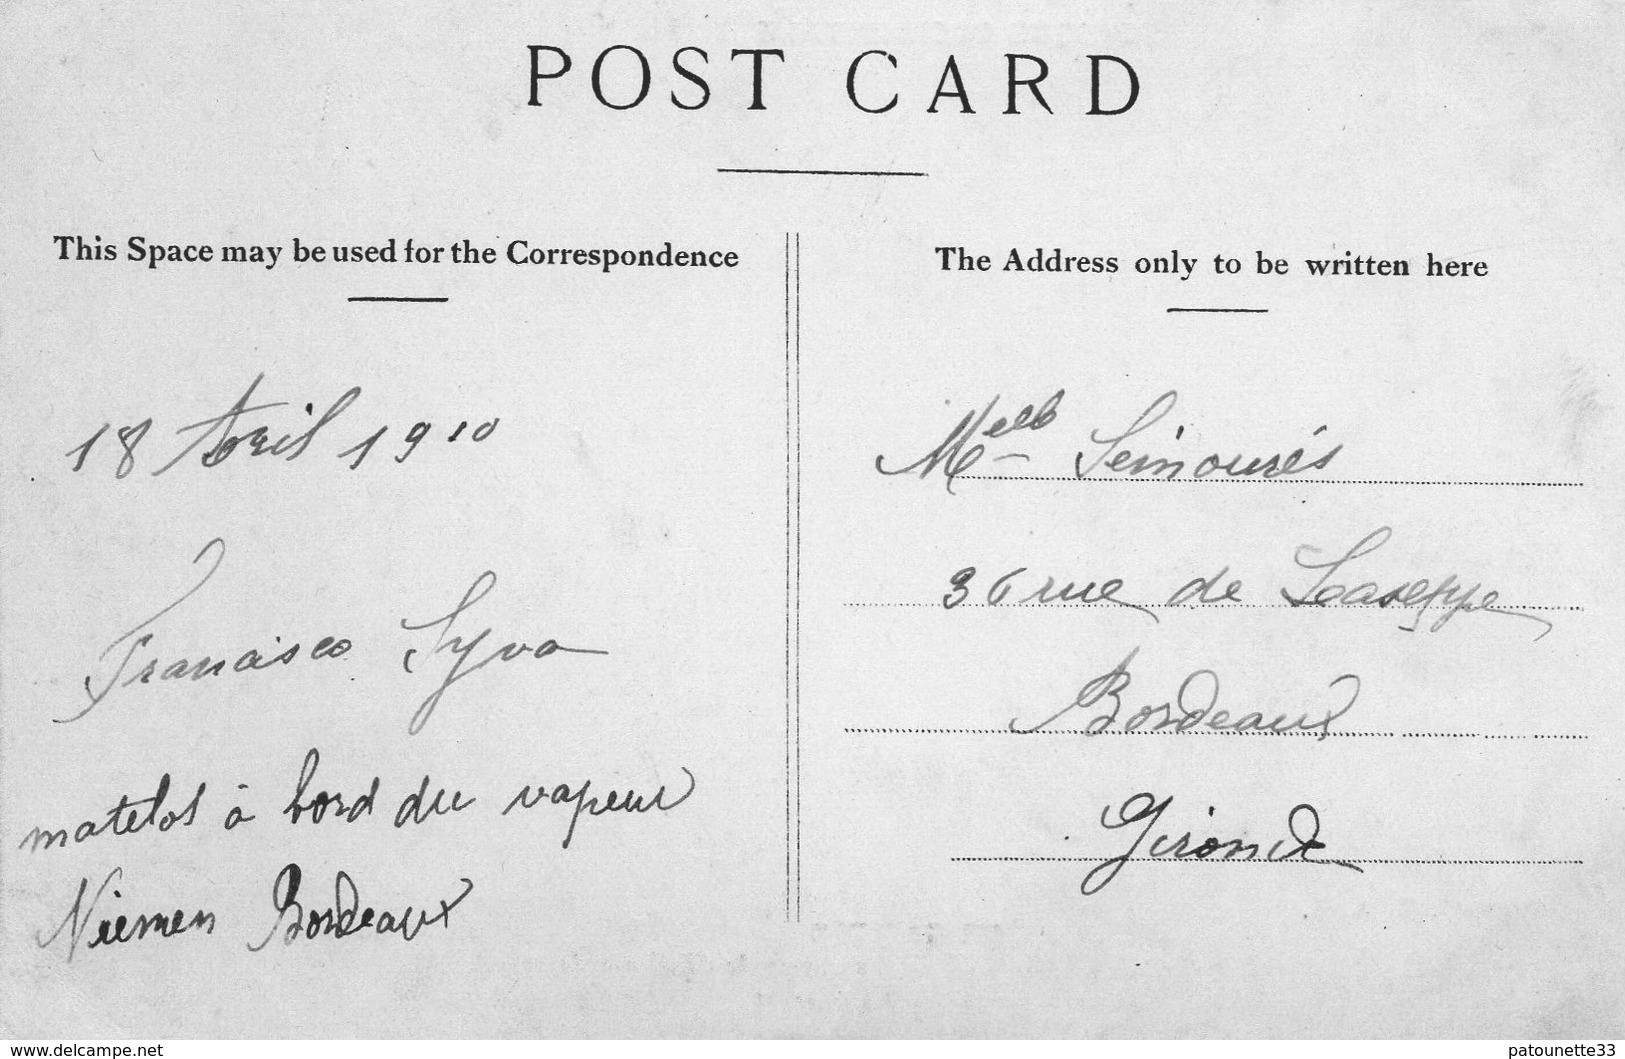 POST CARD
This Space may be used for the Correspondence
18 Avril 1910
Francisco Syva
matelot à bord du vapeur
Niemen Bordeaux
The Address only to be written here
Melle
36 rue de
Bordeaux
Gironde
www.delcampe.net
patounette33